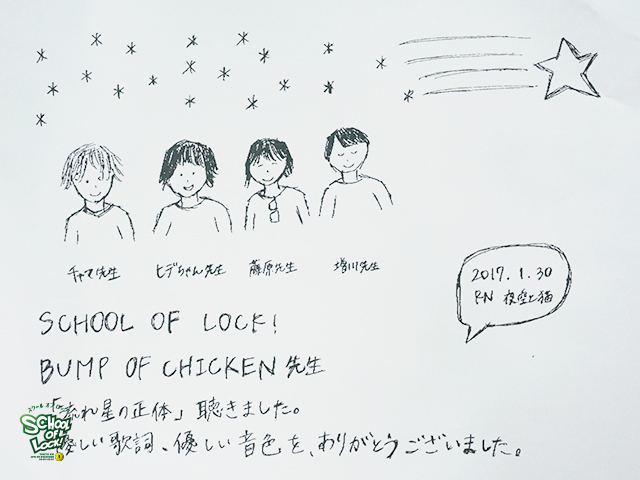 チャマ先生 ヒデちゃん先生 藤原先生 増川先生
2017.1.30
RN 夜空と猫
SCHOOL OF LOCK!
BUMP OF CHICKEN 先生
「流れ星の正体」聴きました。
優しい歌詞、優しい音色を、ありがとうございました。
SCHOOL OF LOCK!